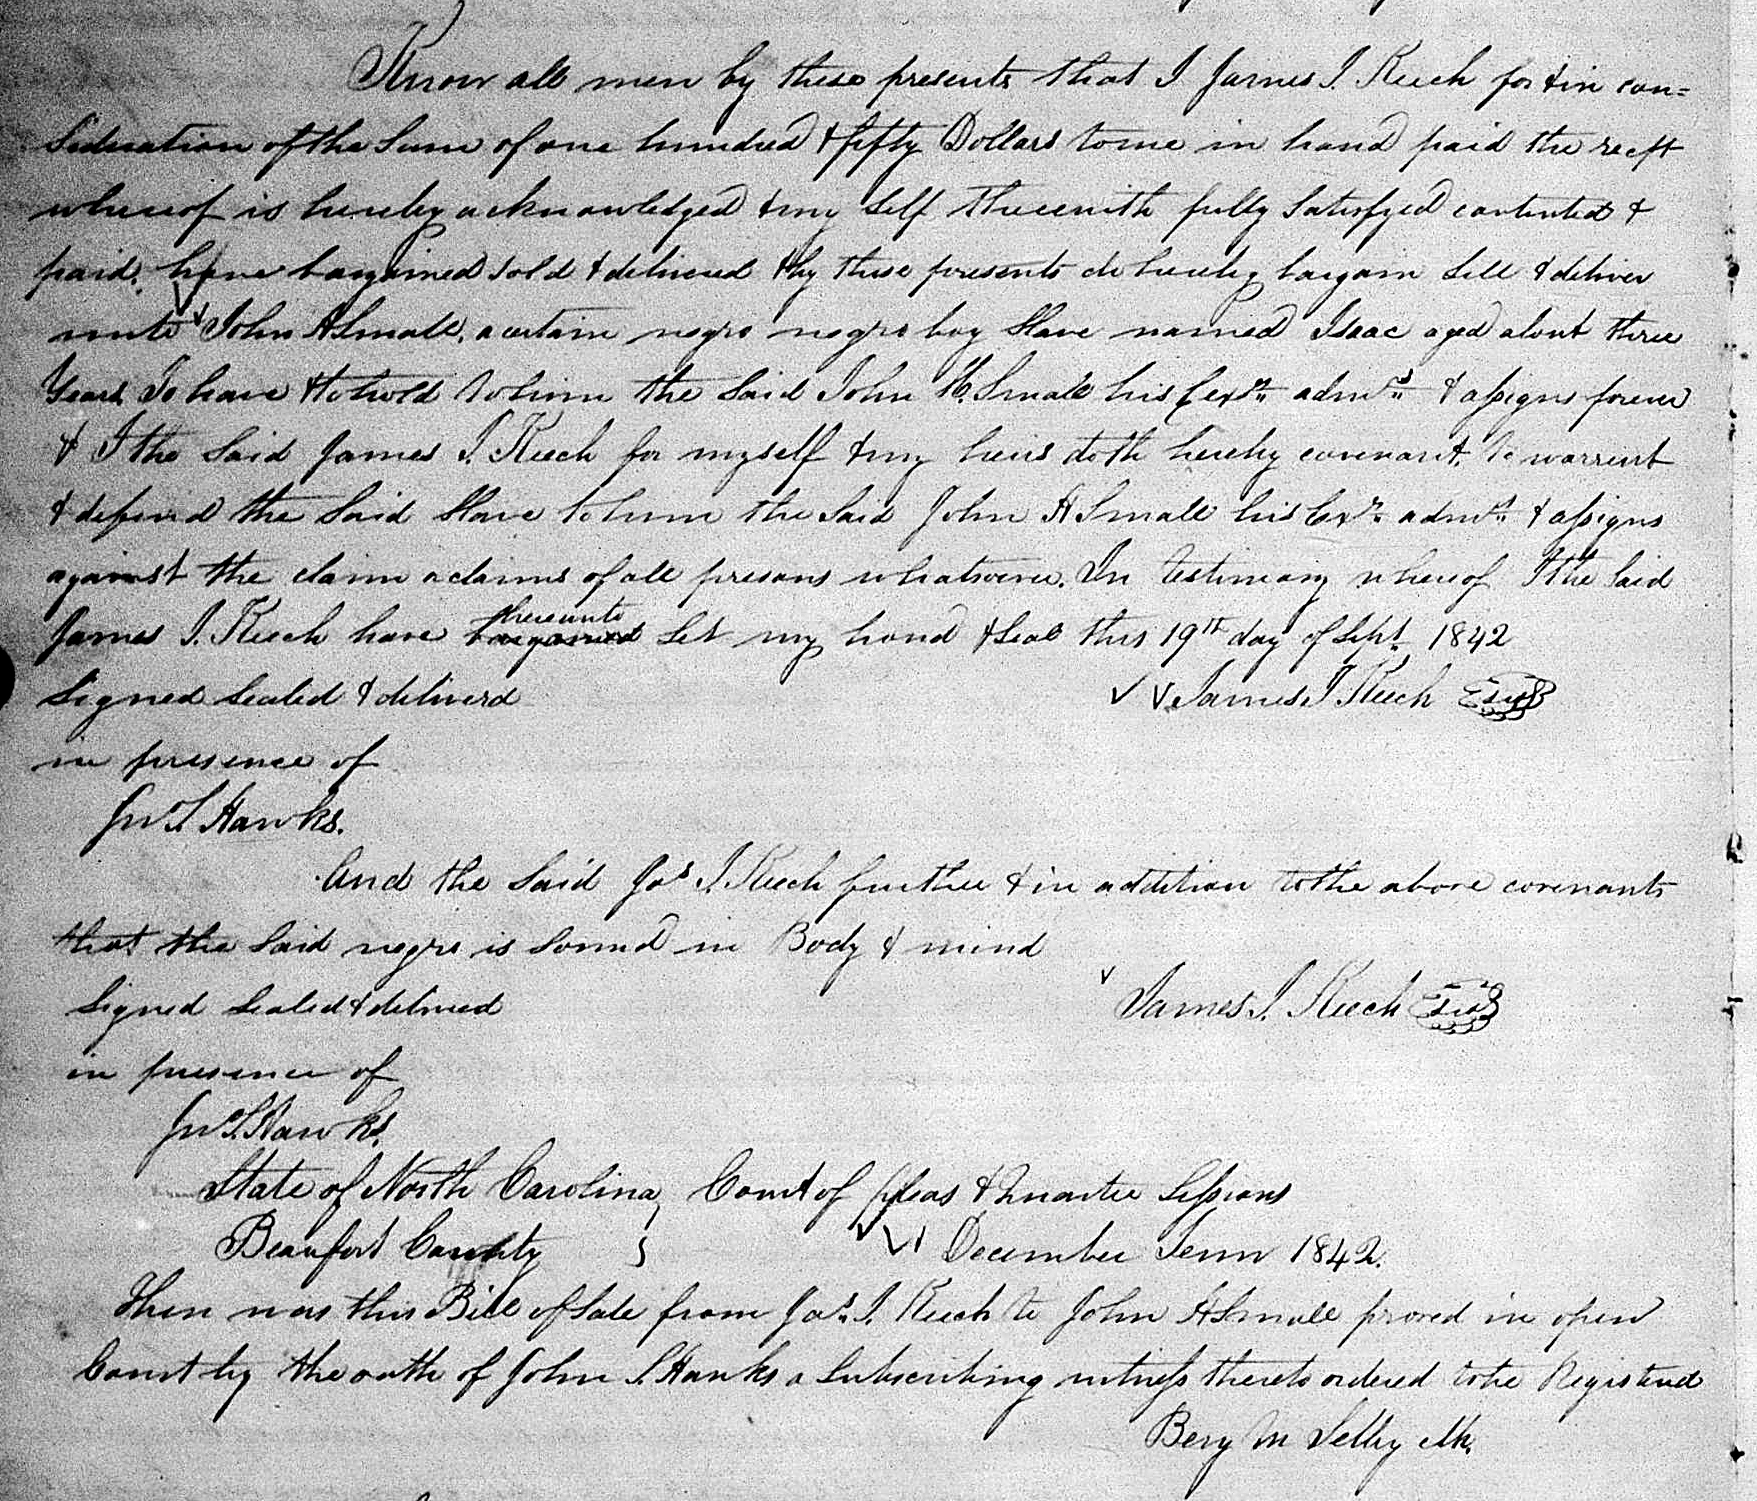 Know all men by these presents that I James J. Keech for & in con=
sideration of the Sum of one hundred & fifty Dollars to me in hand paid the recpt
whereof is hereby acknowledged & my Self therewith fully Satisfyed contented &
paid. have bargained sold & delivered & by these presents do hereby bargain Sell & deliver
unto John H Small, a certain negro negro boy Slave named Isaac aged about three
Years To have & to hold to him the Said John H. Small his Exrs. admrs. & assigns forever
& I the Said James J. Keech for myself & my heirs doth hereby covenant to warrent
& defend the Said Slave to him the Said John H Small his Exrs. admrs. & assigns
against the claim or claims of all presons whatsoever. In testimony whereof I the Said
James J. Keech have bargained thereunto Set my hand & Seal this 19th day of Sept. 1842
Signed Sealed & deliverd James J Keech Seal
in presence of
Jno. S Hawks.
And the Said Jas J. Keech further & in addition to the above covenants
that the Said negro is Sound in Body & mind
Signed Sealed & delivred James J. Keech Seal
in presence of
Jno. S. Hawks.
State of North Carolina } Court of pleas & Quarter Sessions
Beaufort County } December Term 1842.
Then was this Bill of Sale from Jas. J. Keech to John H Small proved in open
Court by the oath of John S. Hawks a Subscribing witness thereto ordered to be Registered
Benj M Selby Clk.